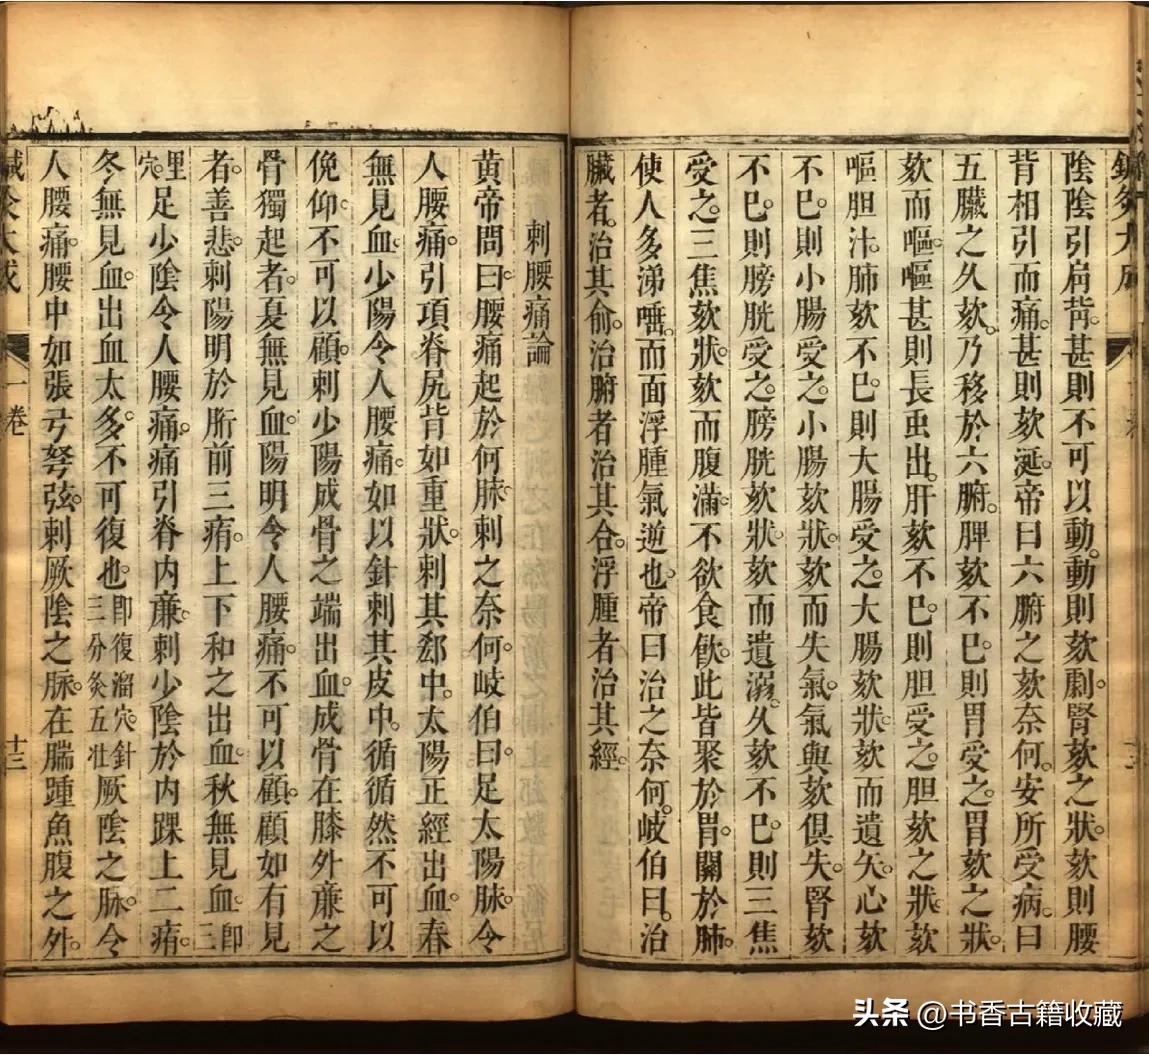 陰陰引肩背甚則不可以動動則欬劇腎欬之狀欬則腰
背相引而痛甚則欬涎帝曰六腑之欬奈何安所受病曰
五臟之久欬乃移於六腑脾欬不已則胃受之胃欬之狀
欬而嘔嘔甚則長虫出肝欬不已則胆受之胆欬之狀欬
嘔胆汁肺欬不已則大腸受之大腸欬狀欬而遺矢心欬
不已則小腸受之小腸欬狀欬而失氣氣與欬俱失腎欬
不已則膀胱受之膀胱欬狀欬而遺溺久欬不已則三焦
受之三焦欬狀欬而腹滿不欲食飲此皆聚於胃關於肺
使人多涕唾而面浮腫氣逆也帝曰治之奈何岐伯曰治
臟者治其俞治腑者治其合浮腫者治其經
刺腰痛論
黃帝問曰腰痛起於何脉刺之奈何岐伯曰足太陽脉令
人腰痛引項脊尻背如重狀刺其郄中太陽正經出血春
無見血少陽令人腰痛如以針刺其皮中循循然不可以
俛仰不可以顧刺少陽成骨之端出血成骨在膝外亷之
骨獨起者夏無見血陽明令人腰痛不可以顧顧如有見
者善悲刺陽明於䯒前三痏上下和之出血秋無見血即三
里穴足少陰令人腰痛痛引脊内亷刺少陰於内踝上二痏
冬無見血出血太多不可復也即復溜穴針三分灸五壯厥陰之脉令
人腰痛腰中如張弓弩弦刺厥陰之脉在腨踵魚腹之外
鍼灸大成
一卷
十三
头条 @书香古籍收藏